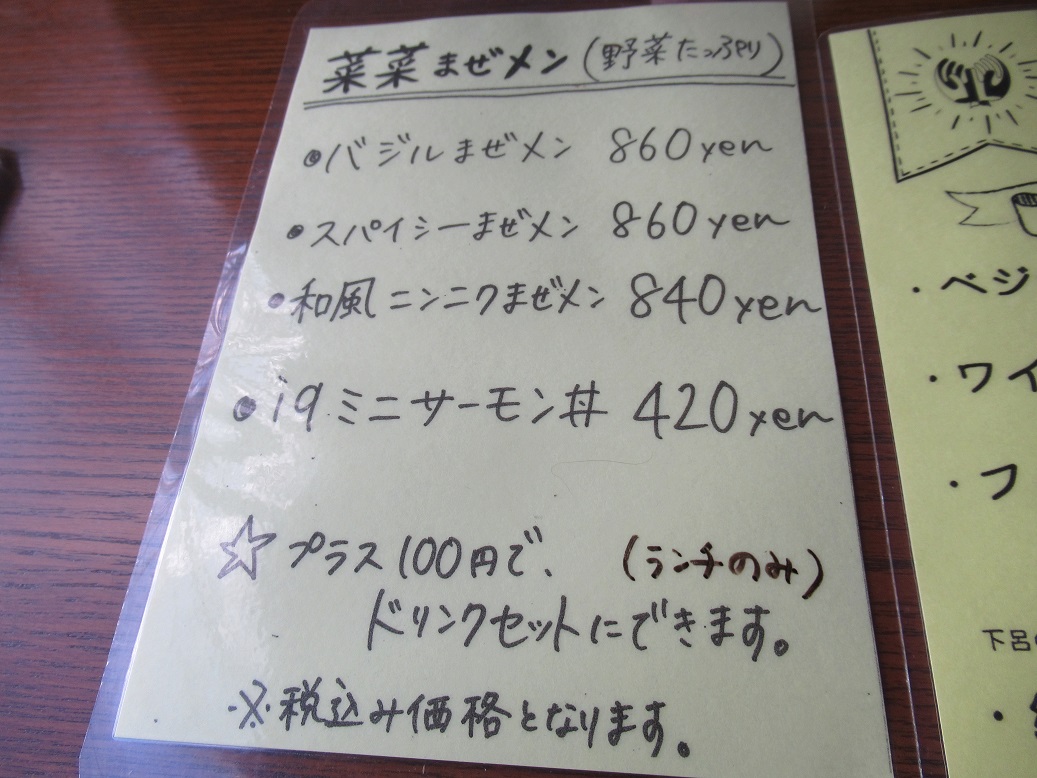 菜菜まぜメン(野菜たっぷり)
・バジルまぜメン 860yen
・スパイシーまぜメン 860yen
・和風ニンニクまぜメン 840yen
・i9ミニサーモン丼 420yen
☆プラス100円で、(ランチのみ)
ドリンクセットにできます。
※税込み価格となります。
・ベジ
・ワイ
・フ
下呂